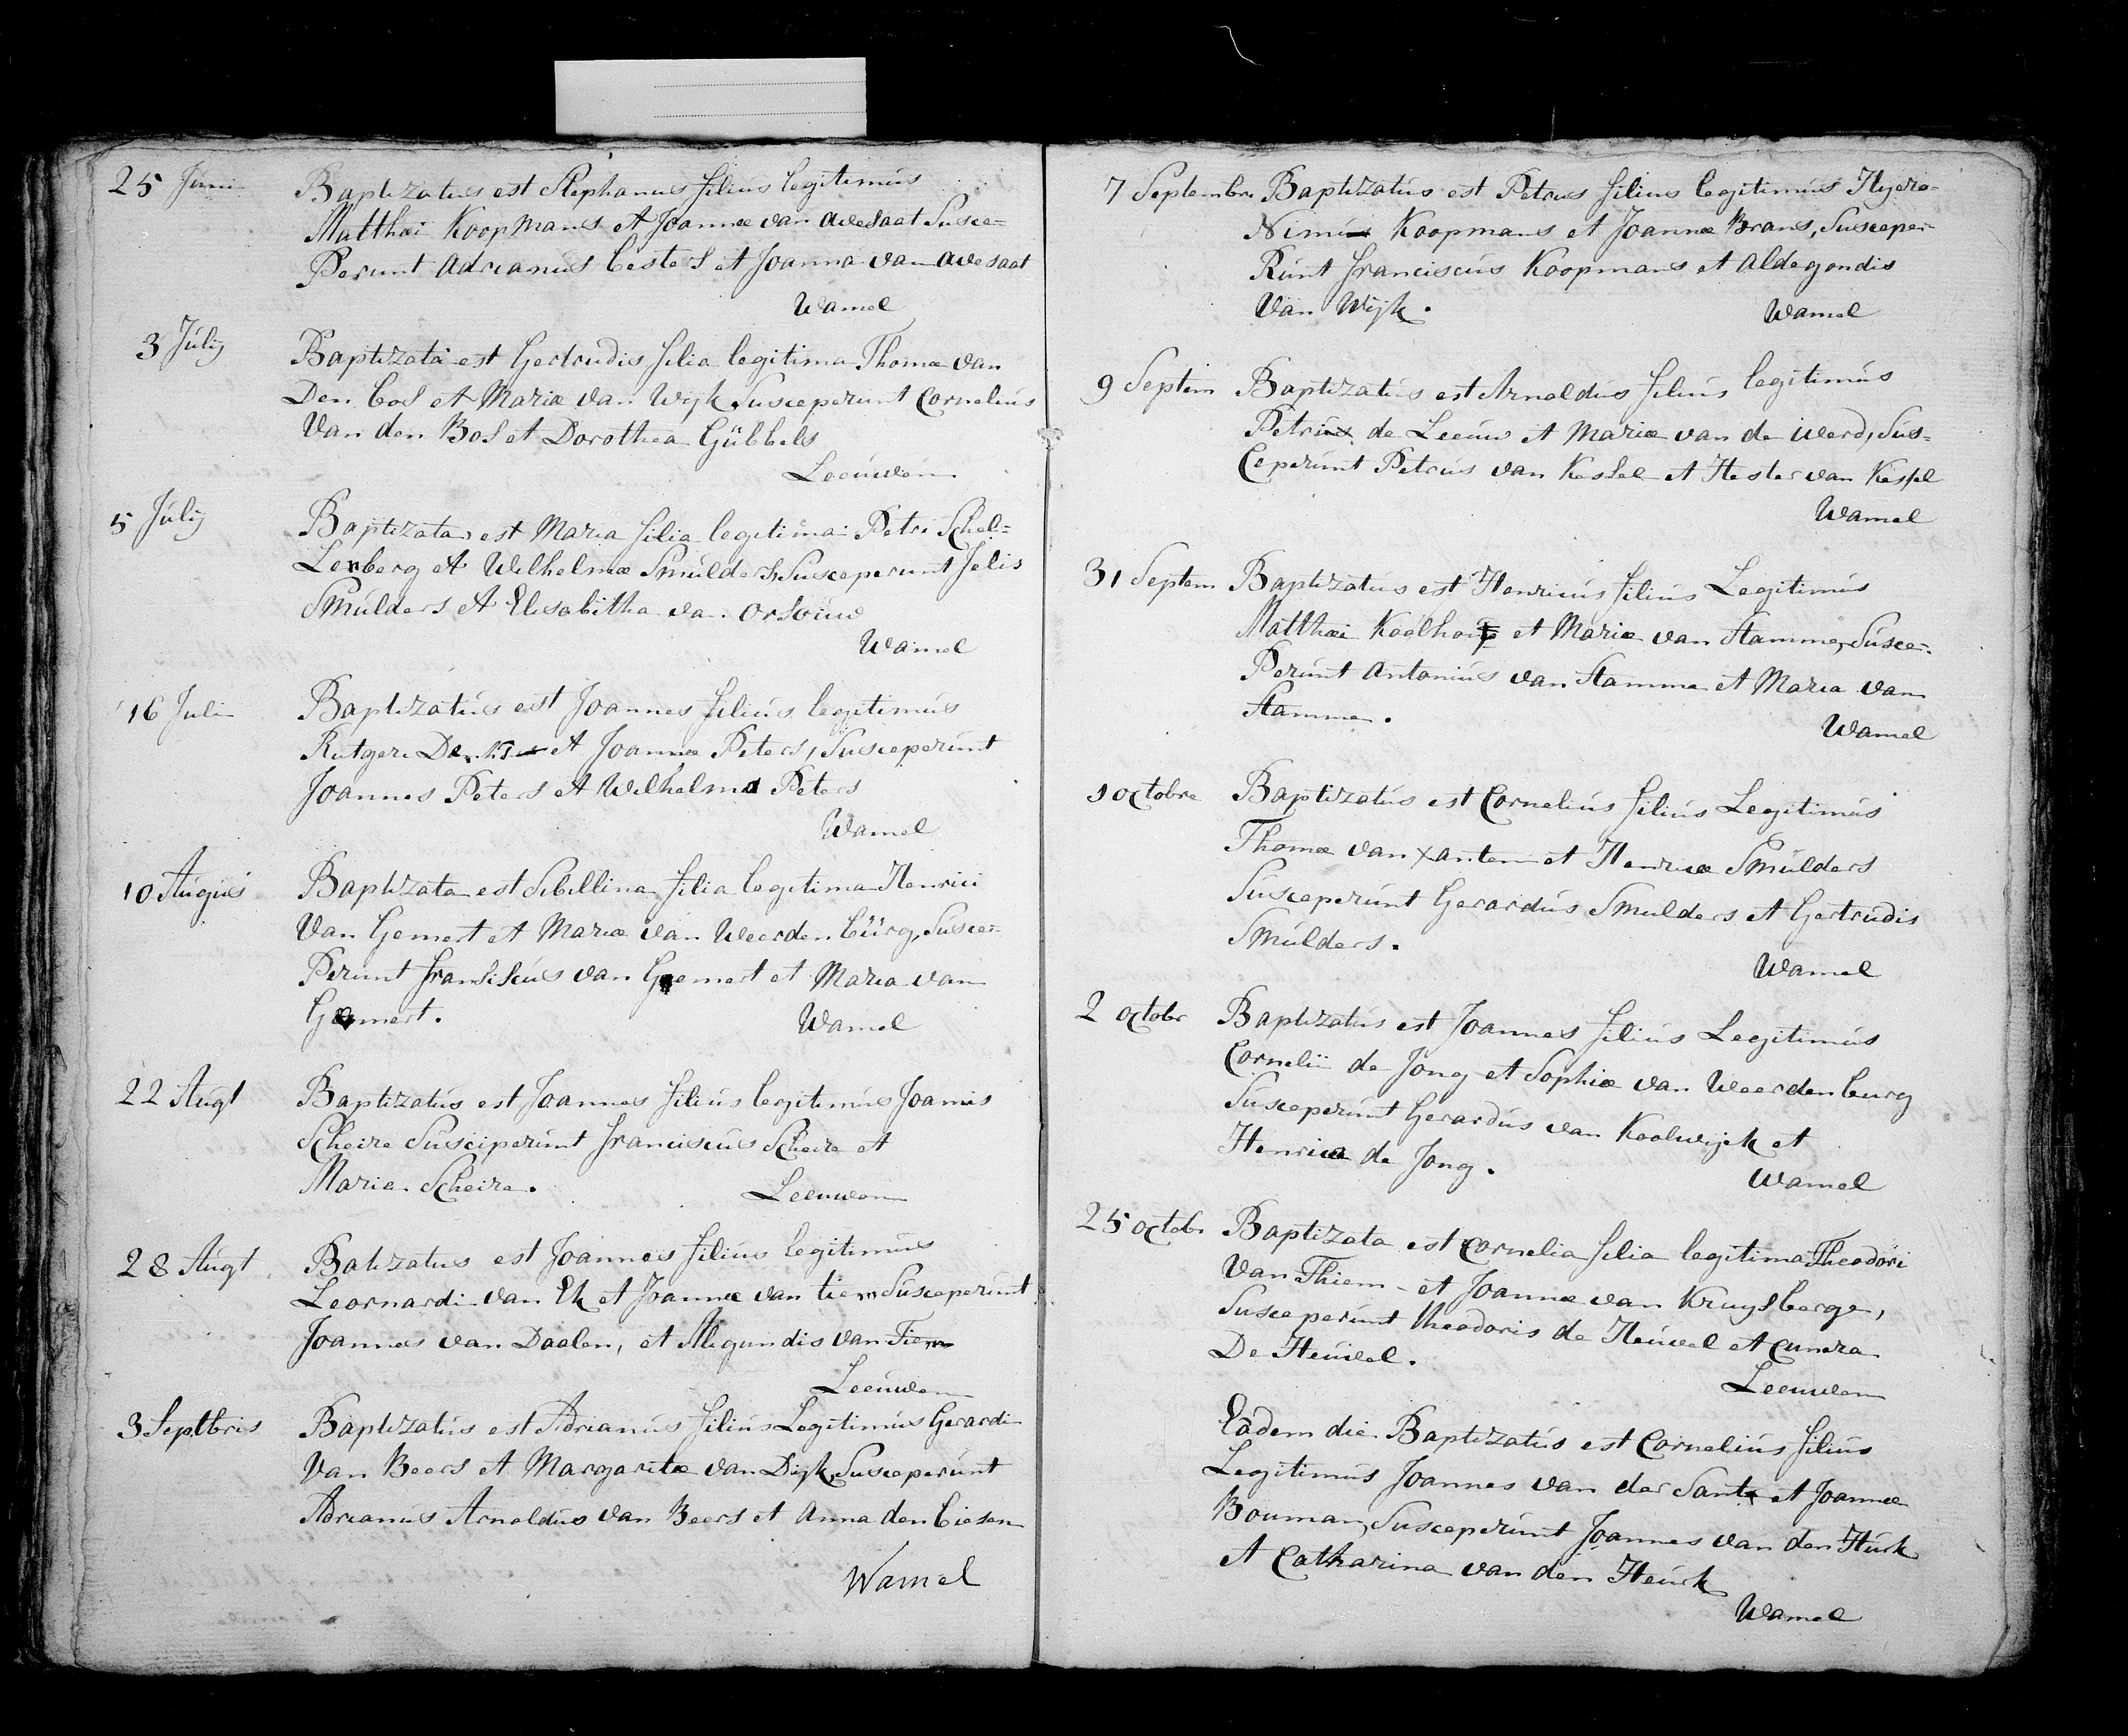 25 Juni Baptizatus est Stephanus filius legitimus
Matthæi Koopmans et Joannæ van avesaat Susce=
Perunt Adrianus besters et Joanna van avesaat
Wamel
3 Julij Baptizata est Gertrudis filia legitima Thomæ van
Den bos et Mariæ van Wijk Susceperunt Cornelius
Van den Bos et Dorothea Gübbels
Leeuwen
5 Julij Baptizata est Maria filia legitima Petri Schel=
Lenberg et Wilhelmæ Smulders Susceperunt Jelis
Smulders et Elisabitha van Orsouw
Wamel
16 Juli Baptizatus est Joannes filius legitimus
Rutgeri et Joannæ Peters, Susceperunt
Joannes Peters et Wilhelma Peters
Wamel
10 Augus Baptizata est Sibillina filia legitima Henrici
Van Gemert et Mariæ van Weerdenbürg, Susce=
Perunt Fransiscus van Gemert et Maria van
Gemert.
Wamel
22 Augt Baptizatus est Joannes filius legitimus Joannis
Scheire Susciperunt franciscus Scheire et
Maria Scheire.
Leeuwen
28 Augt Batizatus est Joannes filius legitimus
Leornardi van Ek et Joannæ van tiem Susceperunt
Joannes van Daalen, et Alegundis van Tiem
Leeuwen
3 Septbris Baptizatus est Adrianus filius Legitimus Gerardi
Van Beers et Margaritæ van Dijk, Susceperunt
Adrianus Arnoldus van Beers et Anna den biesen
Wamel
7 Septembr Baptizatus est Petrus filius legitimus Hyero=
Nimi Koopmans et Joannæ Brans, Susceper=
Runt franciscus Koopmans et aldegondis
Van Wijk.
Wamel
9 Septem Baptizatus est Arnoldus filius legitimus
Petri de Leeuw et Mariæ van de Werd, Sus=
Ceperunt Petrus van Kessel et Hester van Kessel
Wamel
31 Septem Baptizatus est Henricus filius Legitimus
Matthæi et Mariæ van Stamme, Susce=
Perunt Antonius van Stamme et Maria van
Stamme.
Wamel
1 octobre Baptizatus est Cornelius filius Legitimus
Thomæ van Xanten et Henricæ Smulders
Susceperunt Gerardus Smulders et Gertrudis
Smulders.
Wamel
2 octobr Baptizatus est Joannes filius Legitimus
Cornelii de Jong et Sophiæ van Weerdenburg
Susceperunt Gerardus van Koolwijk et
Henrica de Jong.
Wamel
25 octobr Baptizata est Cornelia filia legitima Theodori
Van Thiem et Joannæ van Kruysberge,
Susceperunt theodoris de Heuvel et Cunera
De Heuvel.
Leeuwen
Eâdem die Baptizatus est Cornelius filius
Legitimus Joannes van der Sant et Joannæ
Bouman, Susceperunt Joannes van den Hurk
et Catharina van den Heurk
Wamel